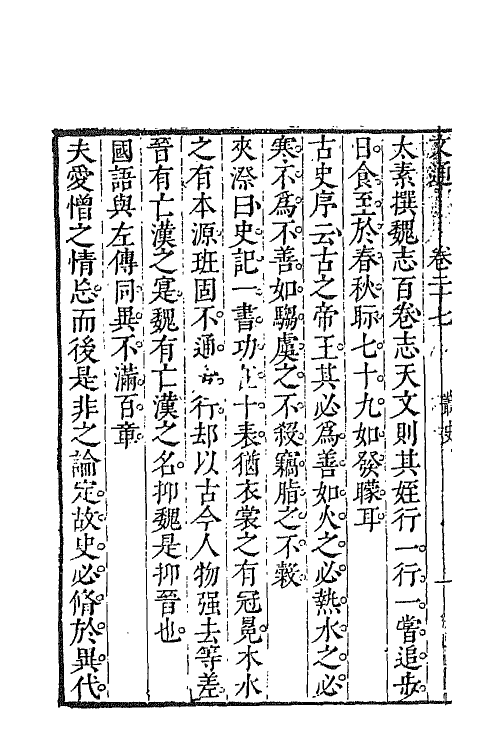 文通 卷二十七 叢史
太素撰魏志百卷志天文則其姪行一行一嘗追步
日食至於春秋眎七十九如發矇耳
古史序云古之帝王其必爲善如火之必熱水之必
寒不爲不善如騶虞之不殺竊脂之不穀
夾漈曰史記一書功在十表猶衣裳之有冠冕木水
之有本源班固不通 行却以古今人物强去等差
晉有亡漢之寔魏有亡漢之名抑魏是抑晉也
國語與左傳同異不滿百章
夫愛憎之情忘而後是非之論定故史必脩於異代